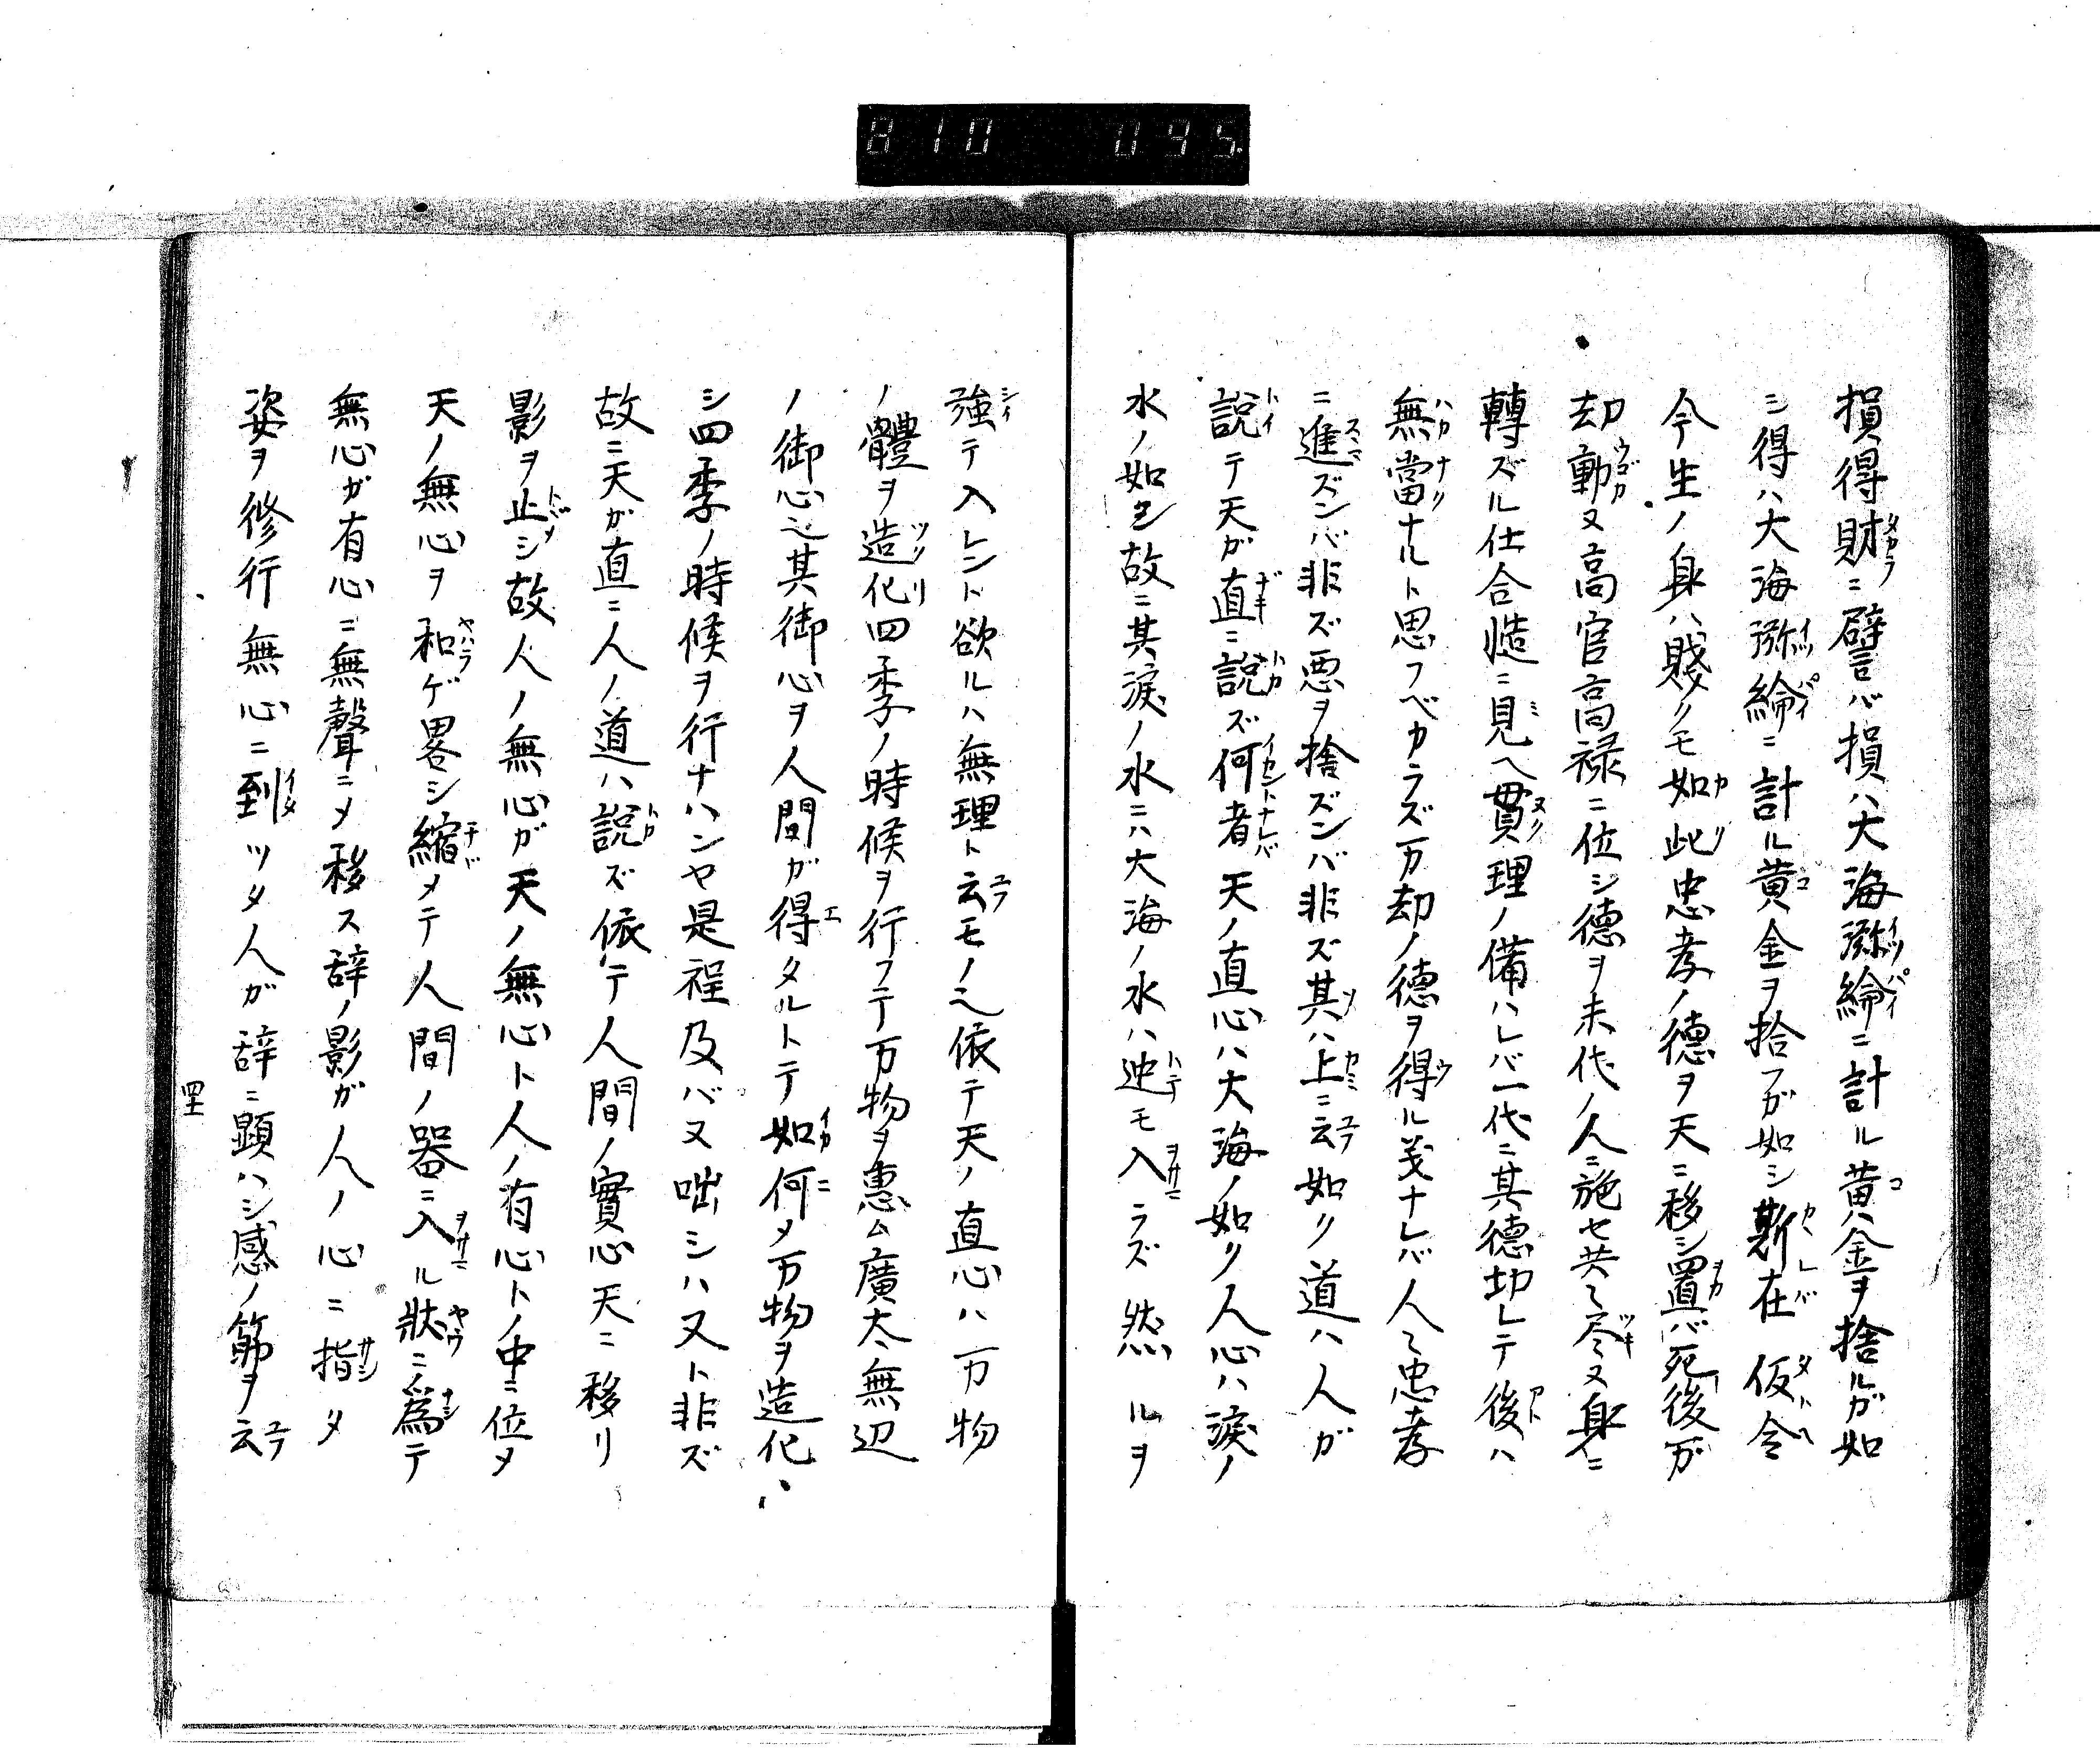 810 045
損得財ニ譬バ損ハ大海瀰綸ニ計ル黄金ヲ捨ルガ如
シ得ハ大海瀰綸ニ計ル黄金ヲ拾フガ如シ斯在仮令
今生ノ身ハ賤クモ如此忠孝ノ德ヲ天ニ移シ置バ死後万
却動ヌ高官高禄ニ位シ德ヲ末代ノ人ニ施セ共々尽ヌ身ニ
轉ズル仕合慥ニ見ヘ貫理ノ備ハレバ一代ニ其德切レテ後ハ
無當ナルト思フベカラズ万却ノ德ヲ得ル義ナレバ人々忠孝
ニ進ズンバ非ズ悪ヲ捨ズンバ非ズ其ハ上ニ云如ク道ハ人ガ
説テ天ガ直ニ説ズ何者天ノ直心ハ大海ノ如ク人心ハ涙ノ
水ノ如シ故ニ其涙ノ水ニハ大海ノ水ハ迚モ入ラズ然ルヲ
強テ入レント欲ルハ無理ト云モノ也依テ天ノ直心ハ万物
ノ體ヲ造化四季ノ時候ヲ行フテ万物ヲ惠ム廣太無辺
ノ御心也其御心ヲ人間ガ得タルトテ如何メ万物ヲ造化ハ
シ四季ノ時候ヲ行ナハンヤ是程及バヌ咄シハ又ト非ズ
故ニ天ガ直ニ人ノ道ハ説ズ依テ人間ノ實心天ニ移リ
影ヲ止シ故人ノ無心ガ天ノ無心ト人ノ有心トノ中ニ位メ
天ノ無心ヲ和ゲ畧シ縮メテ人間ノ器ニ入ル狀ニ爲テ
無心ガ有心ニ無聲ニメ移ス辞ノ影ガ人ノ心ニ指タ
姿ヲ修行無心ニ到ツタ人ガ辞ニ顕ハシ感ノ節ヲ云